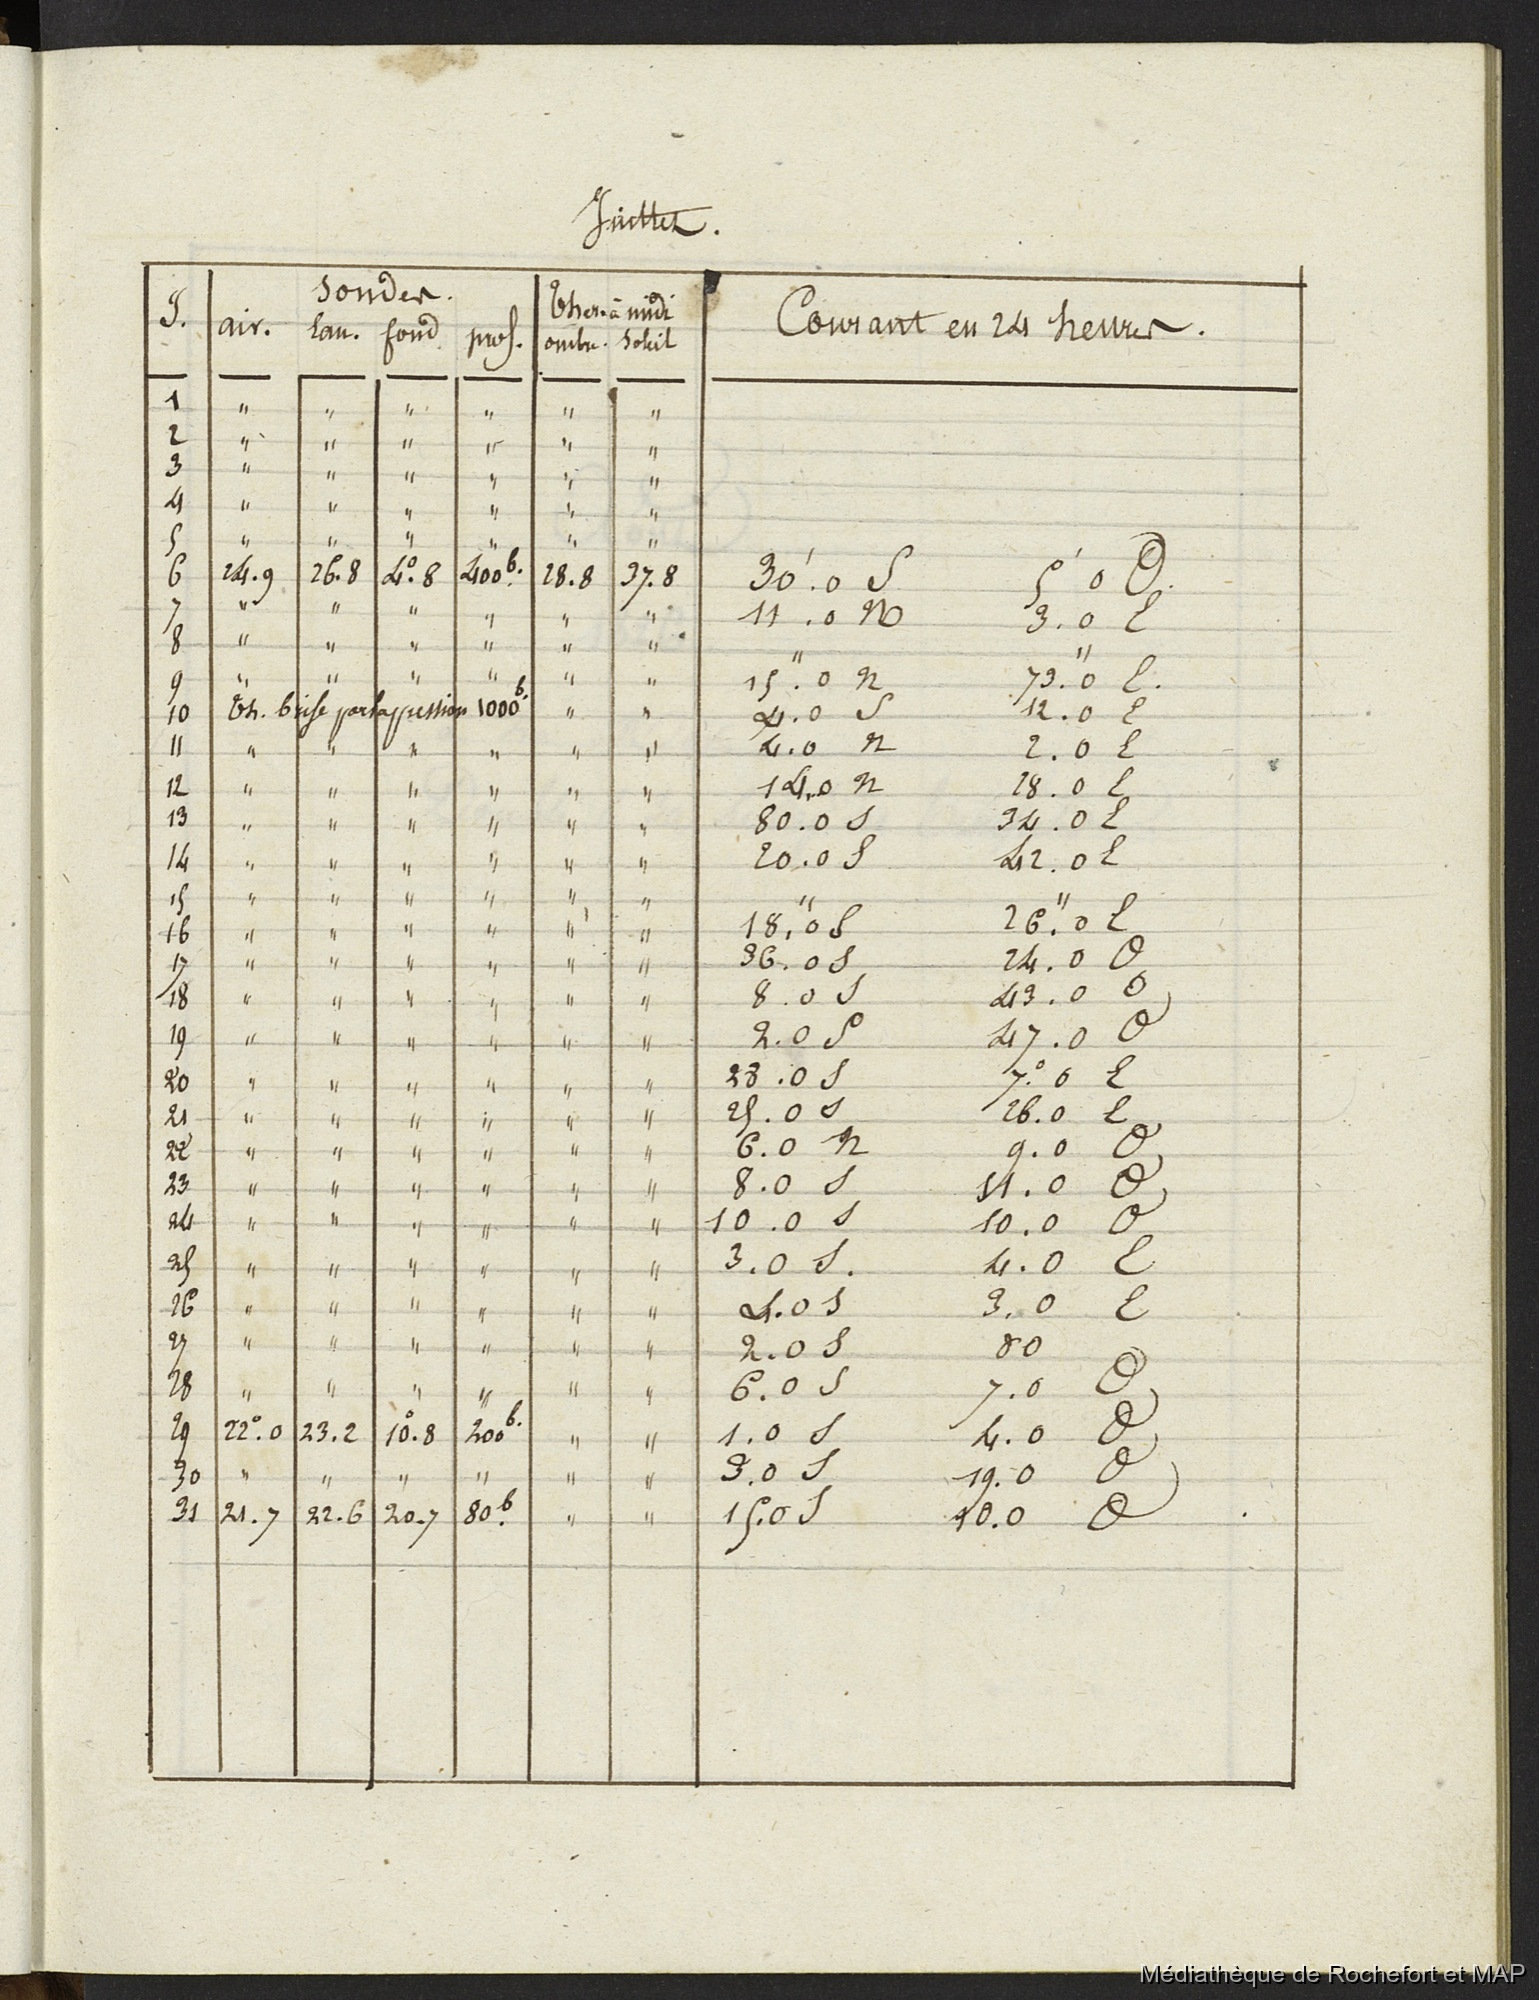 Juillet.
J. Sondes. Ther. à midi Courant en 24 heures.
air. eau. fond prof. ombre. Soleil
1 " " " " " "
2 " " " " " "
3 " " " " " "
4 " " " " " "
5 " " " " " "
6 24.9 26.8 4°.8 400b. 28.8 37.8 30'.0 S 5'0 O.
7 " " " " " " 11.0 N 3.0 E
8 " " " " " " " "
9 " " " " " " 15.0 N 73.0 E.
10 Th. brisé par la pression 1000b. " " 4.0 S 12.0 E
11 " " " " " " 4.0 N 2.0 E
12 " " " " " " 14.0 N 28.0 E
13 " " " " " " 80.0 S 34.0 E
14 " " " " " " 20.0 S 42.0 E
15 " " " " " " " "
16 " " " " " " 18.0 S 26.0 E
17 " " " " " " 36.0 S 24.0 O
18 " " " " " " 8.0 S 43.0 O
19 " " " " " " 2.0 S 47.0 O
20 " " " " " " 23.0 S 7°.0 E
21 " " " " " " 25.0 S 26.0 E
22 " " " " " " 6.0 N 9.0 O
23 " " " " " " 8.0 S 11.0 O
24 " " " " " " 10.0 S 10.0 O
25 " " " " " " 3.0 S. 4.0 E
26 " " " " " " 4.0 S 3.0 E
27 " " " " " " 2.0 S 00
28 " " " " " " 6.0 S 7.0 O
29 22°.0 23.2 10°.8 200b. " " 1.0 S 4.0 O
30 " " " " " " 3.0 S 19.0 O
31 21.7 22.6 20.7 80b. " " 15.0 S 10.0 O
Médiathèque de Rochefort et MAP